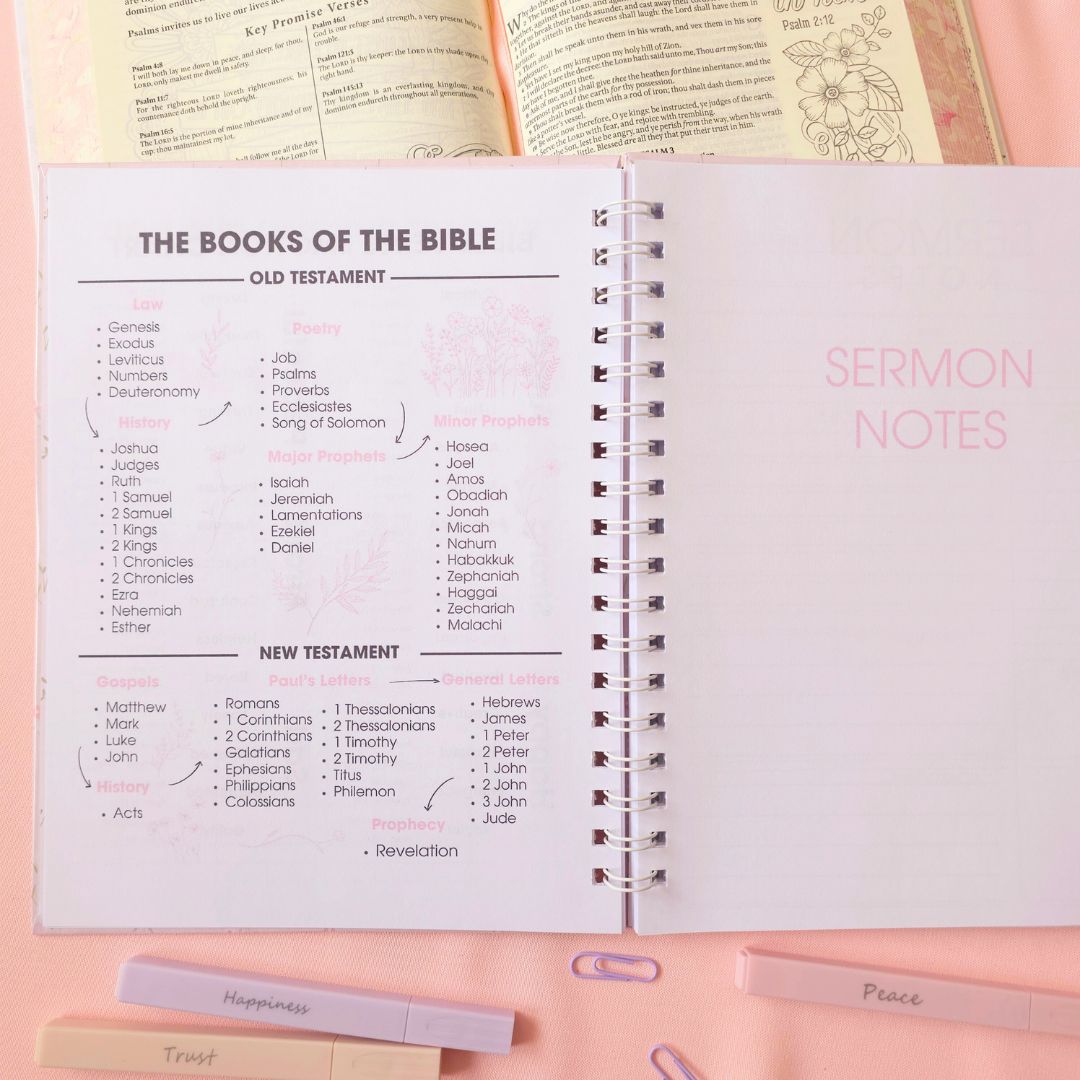 dominion endureth
Psalms invites us to live our lives
Key Promise Verses
Psalm 4:8
I will both lay me down in peace, and sleep: for thou,
LORD, only makest me dwell in safety.
Psalm 11:7
For the righteous LORD loveth righteousness; his
countenance doth behold the upright.
Psalm 16:5
The LORD is the portion of mine inheritance and of my
cup: thou maintainest my lot.
shall follow me all the days
of the LORD for
Psalm 46:1
God is our refuge and strength, a very present help in
trouble.
Psalm 121:5
The LORD is thy keeper: the LORD is thy shade upon thy
right hand.
Psalm 145:13
Thy kingdom is an everlasting kingdom, and thy
dominion endureth throughout all generations.
together, against the LORD, and against
Let us break their bands asunder, and cast away their cords
He that sitteth in the heavens shall laugh: the Lord shall have them in
Then shall he speak unto them in his wrath, and vex them in his sore
displeasure.
Yet have I set my king upon my holy hill of Zion.
I will declare the decree: the LORD hath said unto me, Thou art my Son; this
Ask of me, and I shall give thee the heathen for thine inheritance, and the
uttermost parts of the earth for thy possession.
Thou shalt break them with a rod of iron; thou shalt dash them in pieces
like a potter's vessel.
Be wise now therefore, O ye kings: be instructed, ye judges of the earth.
Serve the LORD with fear, and rejoice with trembling.
the Son, lest he be angry, and ye perish from the way, when his wrath
little. Blessed are all they that put their trust in him.
PSALM 3
Psalm 2:12
THE BOOKS OF THE BIBLE
OLD TESTAMENT
Law
• Genesis
• Exodus
• Leviticus
• Numbers
• Deuteronomy
History
• Joshua
• Judges
• Ruth
• 1 Samuel
• 2 Samuel
• 1 Kings
• 2 Kings
• 1 Chronicles
• 2 Chronicles
• Ezra
• Nehemiah
• Esther
Poetry
• Job
• Psalms
• Proverbs
• Ecclesiastes
• Song of Solomon
Major Prophets
• Isaiah
• Jeremiah
• Lamentations
• Ezekiel
• Daniel
Minor Prophets
• Hosea
• Joel
• Amos
• Obadiah
• Jonah
• Micah
• Nahum
• Habakkuk
• Zephaniah
• Haggai
• Zechariah
• Malachi
NEW TESTAMENT
Gospels
• Matthew
• Mark
• Luke
• John
History
• Acts
Paul's Letters
• Romans
• 1 Corinthians
• 2 Corinthians
• Galatians
• Ephesians
• Philippians
• Colossians
• 1 Thessalonians
• 2 Thessalonians
• 1 Timothy
• 2 Timothy
• Titus
• Philemon
General Letters
• Hebrews
• James
• 1 Peter
• 2 Peter
• 1 John
• 2 John
• 3 John
• Jude
Prophecy
• Revelation
SERMON
NOTES
Happiness
Trust
Peace